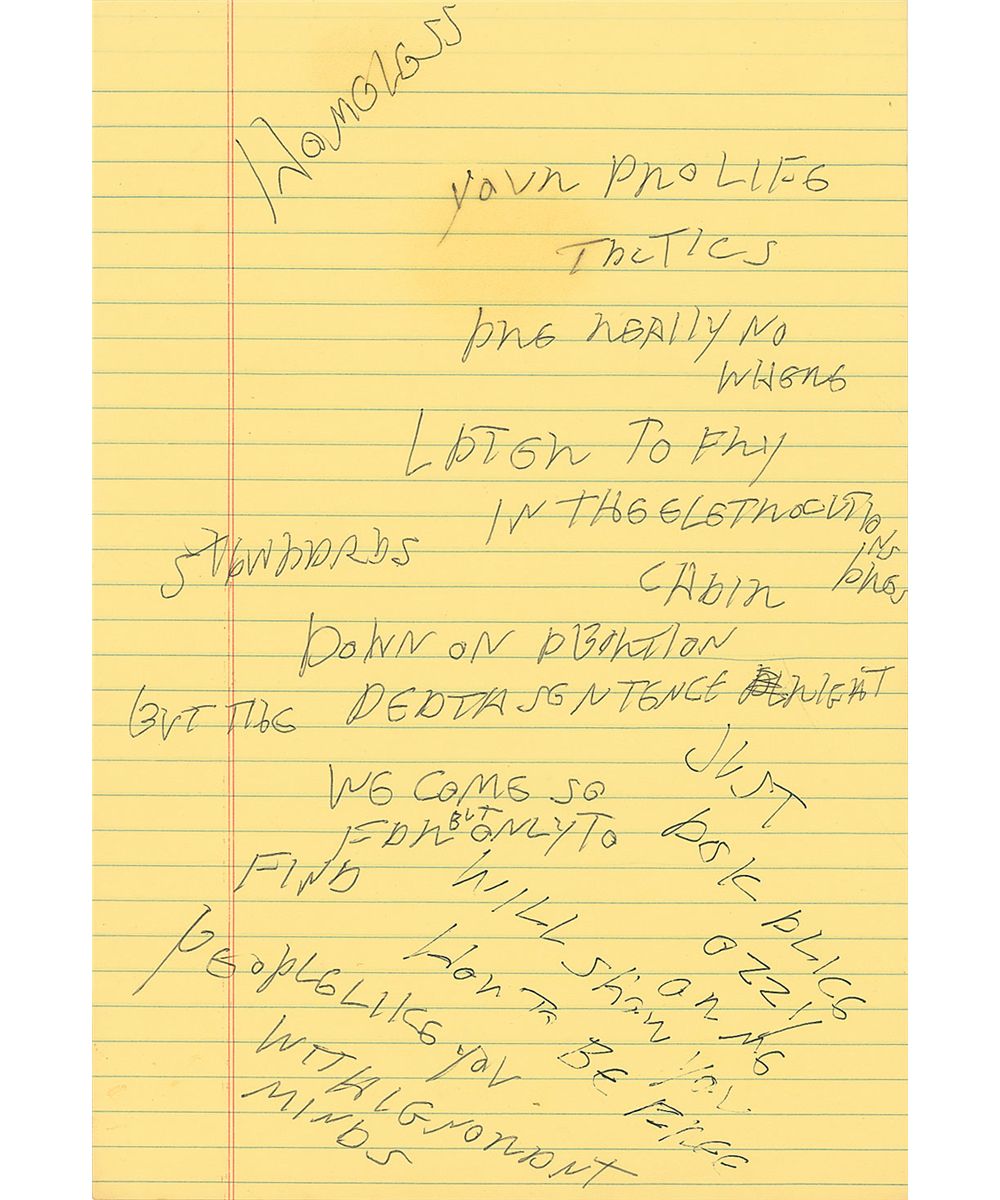 HOMELESS
YOUR PRO LIFE
TACTICS
ARE REALLY NO
WHERE
LATER TO FRY
IN THE ELETROCUTIO
INS
ARES
STANDARDS
CHAIR
DOWN ON ABORTION
BUT THE DEATH SENTENCE RIGHT
WE COME SO
FAR BUT ONLY TO
FIND
PEOPLE LIKE YOU
WITH IGNORANT
MINDS
JUST
ASK ALICE
OZZY
OR ME
WILL SHOW YOU
HOW TO BE FREE